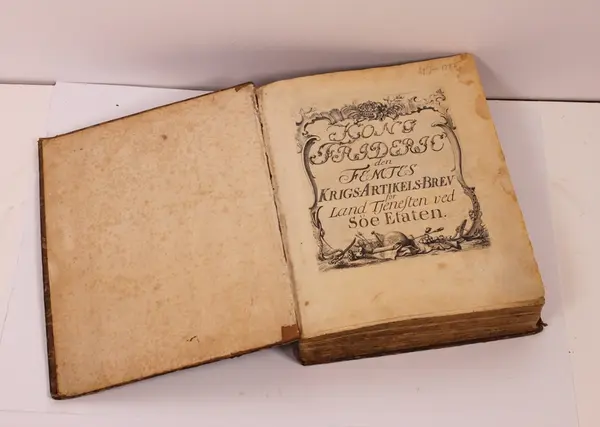 KONG
FRIDERIC
den
FEMTES
KRIGSARTIKELS-BREV
for
Land Tjenesten ved
Söe Etaten.